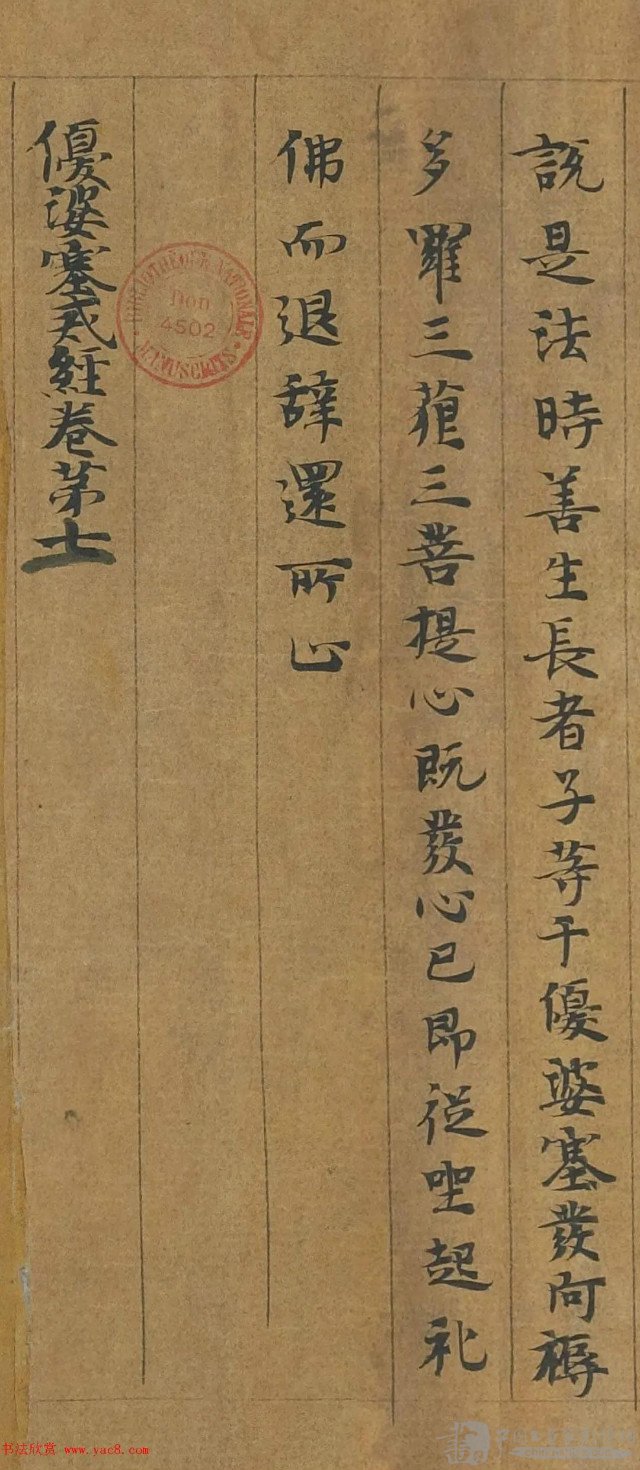 說是法時善生長者子等千優婆塞發阿耨
多羅三藐三菩提心既發心已即從坐起礼
佛而退辞還所止
優婆塞戒經卷第十
BIBLIOTHÈQUE NATIONALE
Don
4502
MANUSCRITS
书法欣赏 www.yac8.com